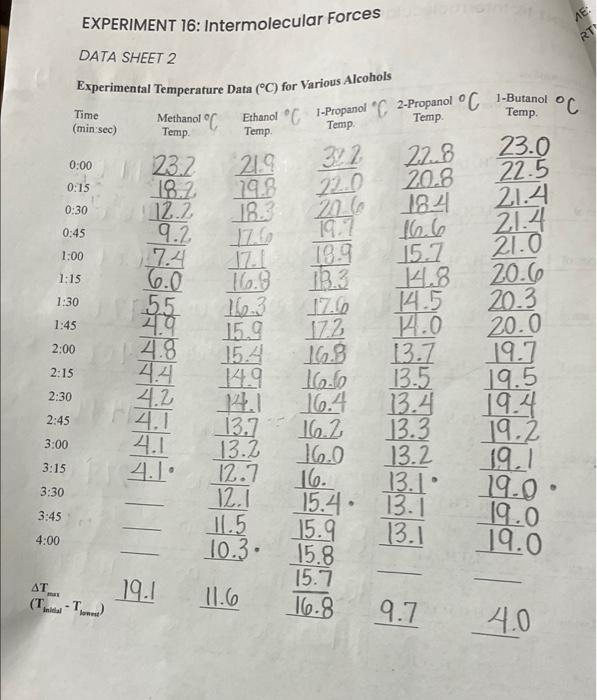 EXPERIMENT 16: Intermolecular Forces
DATA SHEET 2
Experimental Temperature Data (°C) for Various Alcohols
Time (min:sec) Methanol °C Temp. Ethanol °C Temp. 1-Propanol °C Temp. 2-Propanol °C Temp. 1-Butanol °C Temp.
0:00 23.2 21.9 22.8 23.0
0:15 18.2 19.8 22.0 20.8 22.5
0:30 12.2 18.3 20.6 18.4 21.4
0:45 9.2 17.6 19.7 16.6 21.4
1:00 7.4 17.1 18.9 15.7 21.0
1:15 6.0 16.8 18.3 14.8 20.6
1:30 5.5 16.3 17.6 14.5 20.3
1:45 4.9 15.9 17.2 14.0 20.0
2:00 4.8 15.4 16.8 13.7 19.7
2:15 4.4 14.9 16.6 13.5 19.5
2:30 4.2 14.1 16.4 13.4 19.4
2:45 4.1 13.7 16.2 13.3 19.2
3:00 4.1 13.2 16.0 13.2 19.1
3:15 4.1. 12.7 16. 13.1. 19.0.
3:30 12.1 15.4. 13.1 19.0
3:45 11.5 15.9 13.1 19.0
4:00 10.3. 15.8
15.7
ΔTmax (Tinitial - Tlowest) 19.1 11.6 16.8 9.7 4.0